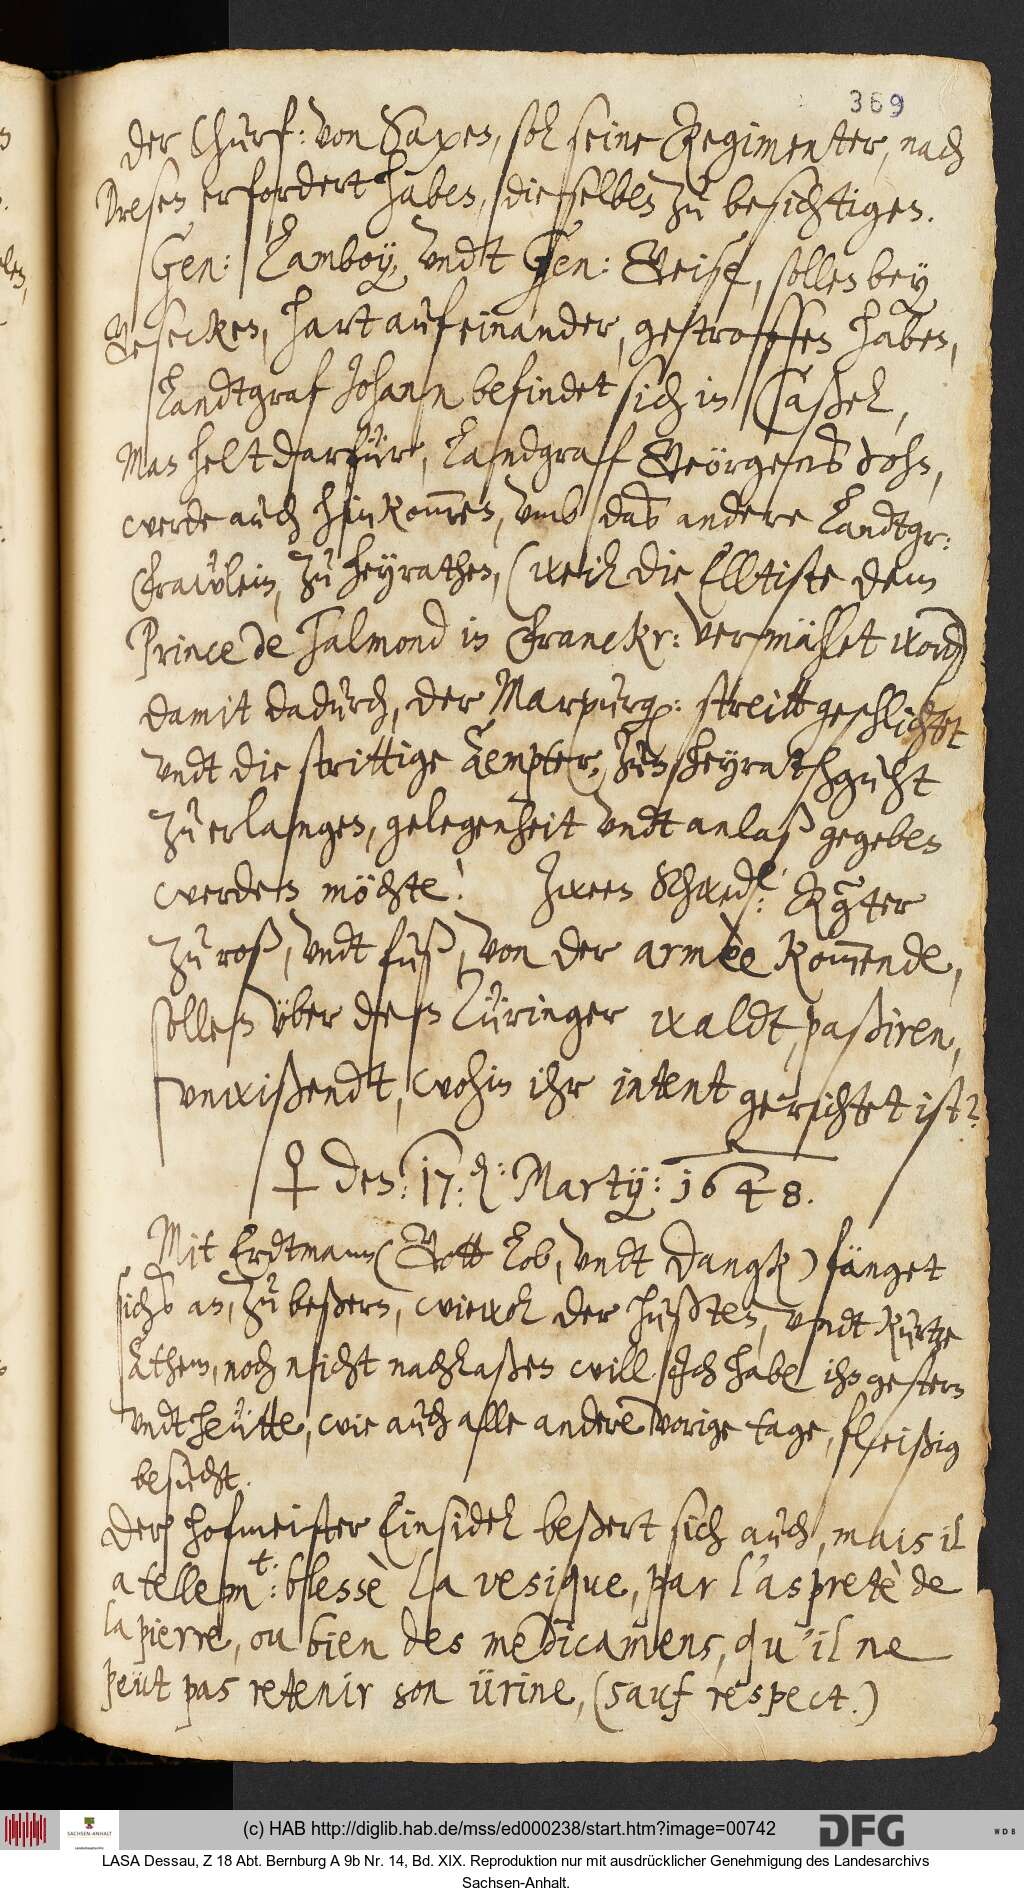 369
der Churf: von Saxen, sol seine Regimenter, nach
Dresen erfordert haben, dieselben zu besichtigen.
Gen: Lamboy, undt Gen: Geise, sollen bey
Gesecken, hart aufeinander, getroffen haben,
Landtgraf Johann befindet sich in Caßel,
Man helt darfür, Landgraff Geörgens Sohn,
werde auch hinkom̅en, umb das andere Landtgr:
Fraẅlein, zu heyrathen, (weil die Elltiste dem
Prince de Talmond in Franckr: vermählet word)
damit dadurch, der Marpurg: streitt geschlichtet
undt die strittige Aempter, zum heyrathguht
zu erlangen, gelegenheit undt anlaß gegeben
werden möchte! Zween Schwed: R͠gter
zu roß, undt fuß, von der armèe kom̅ende,
sollen über den Düringer waldt, paßiren,
unwißendt, wohin ihr intent gerichtet ist?
♀ den: 17: d: Martij: 1648.
Mit Erdtmann (Gott Lob, undt Dangk) fänget
sichs an, zu beßern, wiewol der hußten, undt kurtze
Athem, noch nicht nachlaßen will. Ich habe ihn gestern
undt heütte, wie auch alle andere vorige tage, fleißig
besucht.
Der hofmeister Einsidel beßert sich auch, mais il
a tellem t: blessè la vesique, par l'aspretè de
la pierre, ou bien des medicamens, qu'il ne
peüt pas retenir son ürine, (sauf respect.)
SACHSEN-ANHALT
(c) HAB http://diglib.hab.de/mss/ed000238/start.htm?image=00742
DFG
WDB
LASA Dessau, Z 18 Abt. Bernburg A 9b Nr. 14, Bd. XIX. Reproduktion nur mit ausdrücklicher Genehmigung des Landesarchivs
Sachsen-Anhalt.